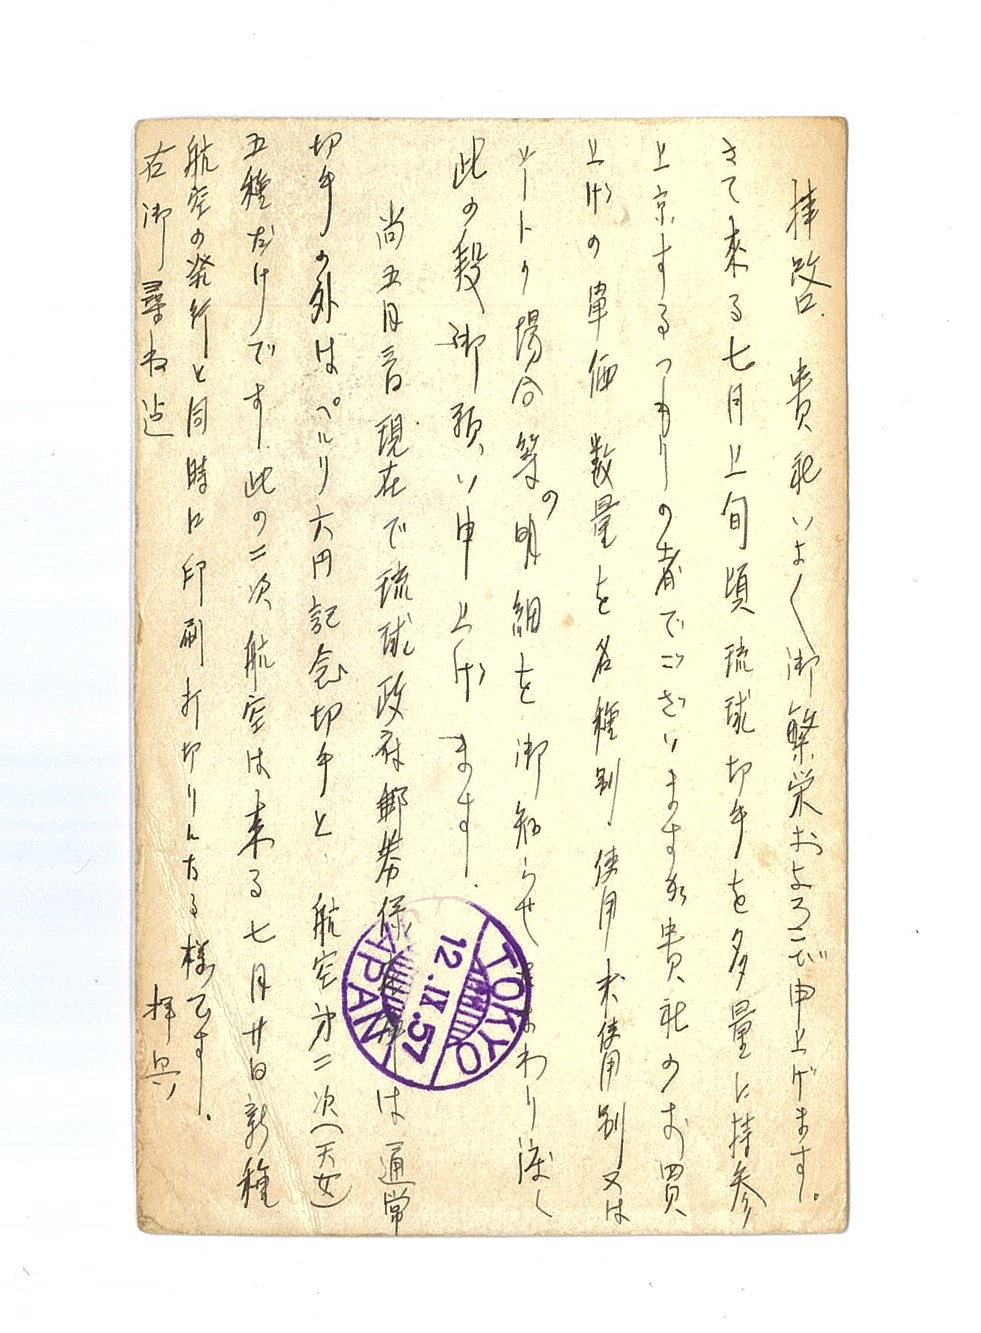 拝啓. 貴社いよ〱御繁栄およろこび申上げます。
さて来る七月上旬頃琉球切手を多量に持参
上京するつもりの者でございますが貴社のお買
上げの単価 数量を各種別.使用 未使用別又は
シートの場合等の明細を御知らせ まわり度く
此の段御願い申上げます.
尚五月 日現在で琉球政府郵券 は通常
切手の外はペルリ六円記念切手と 航空第二次(天女)
五種だけです.此の二次航空は来る七月廿日新種
航空の発行と同時に印刷打切りになる様です.
右御尋ね迄 拝具
TOKYO
12.IX.57
JAPAN